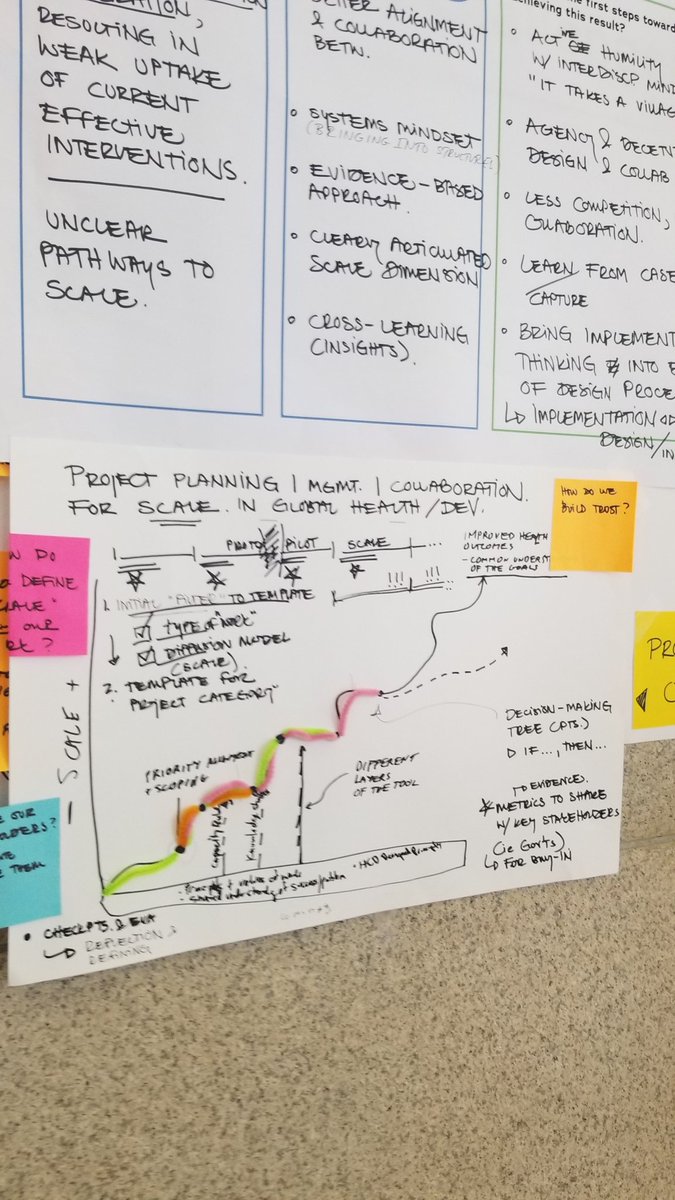 RESULTING IN
WEAK UPTAKE
OF CURRENT
EFFECTIVE
INTERVENTIONS.
UNCLEAR
PATHWAYS TO
SCALE.
ALIGNMENT
& COLLABORATION
BETN.
• SYSTEMS MINDSET
(BRINGING INTO STRUCTURE)
• EVIDENCE-BASED
APPROACH.
• CLEARLY ARTICULATED
SCALE DIMENSION
• CROSS-LEARNING
(INSIGHTS).
first steps toward
achieving this result?
• ACTIVE HUMILITY
W/ INTERDISCP. MIND
"IT TAKES A VILLAG
• AGENCY & DECENT
DESIGN & COLLAB
• LESS COMPETITION,
COLLABORATION.
• LEARN FROM CASE
CAPTURE
• BRING IMPLEMENT
THINKING INTO
OF DESIGN PROCE
↳ IMPLEMENTATION
DESIGN/IN
PROJECT PLANNING | MGMT. | COLLABORATION.
FOR SCALE. IN GLOBAL HEALTH/DEV.
HOW DO WE
BUILD TRUST?
PROTO PILOT SCALE ...
IMPROVED HEALTH
OUTCOMES
- COMMON UNDERST
OF THE GOALS
!!! !!!
DO
DEFINE
OUR
1. INITIAL "FILTER" TO TEMPLATE
TYPE OF "WORK"
DIFFUSION MODEL
(SCALE)
2. TEMPLATE FOR
"PROJECT CATEGORY"
PRO
- SCALE +
PRIORITY ALIGNMENT
+ SCOPING
DIFFERENT
LAYERS
OF THE TOOL
DECISION-MAKING
TREE (PTS.)
IF..., THEN...
EVIDENCE.
METRICS TO SHARE
W/ KEY STAKEHOLDERS
(ie GOVTS)
↳ FOR BUY-IN
OUR
THEM
Capacity
Knowledge
• Principles + values of work
• Shared understanding of success/problem
• HCD
• CHECKPTS. &
↳ REFLECTION &
DEFINING